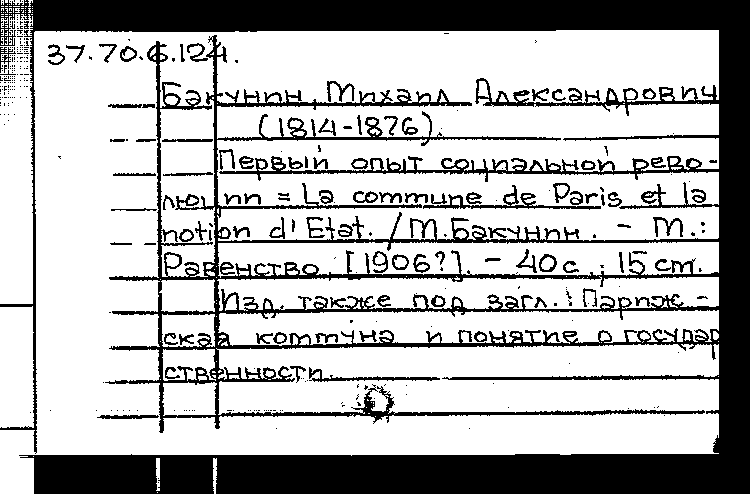 37.70.6.124.
Бакунин, Михаил Александрович
(1814-1876).
Первый опыт социальной рево-
люции = La commune de Paris et la
notion d'Etat. / М.Бакунин. - М.:
Равенство, [1906?]. - 40 с.; 15 cm.
Изд. также под загл.: Париж-
ская коммуна и понятие о государ
ственности.